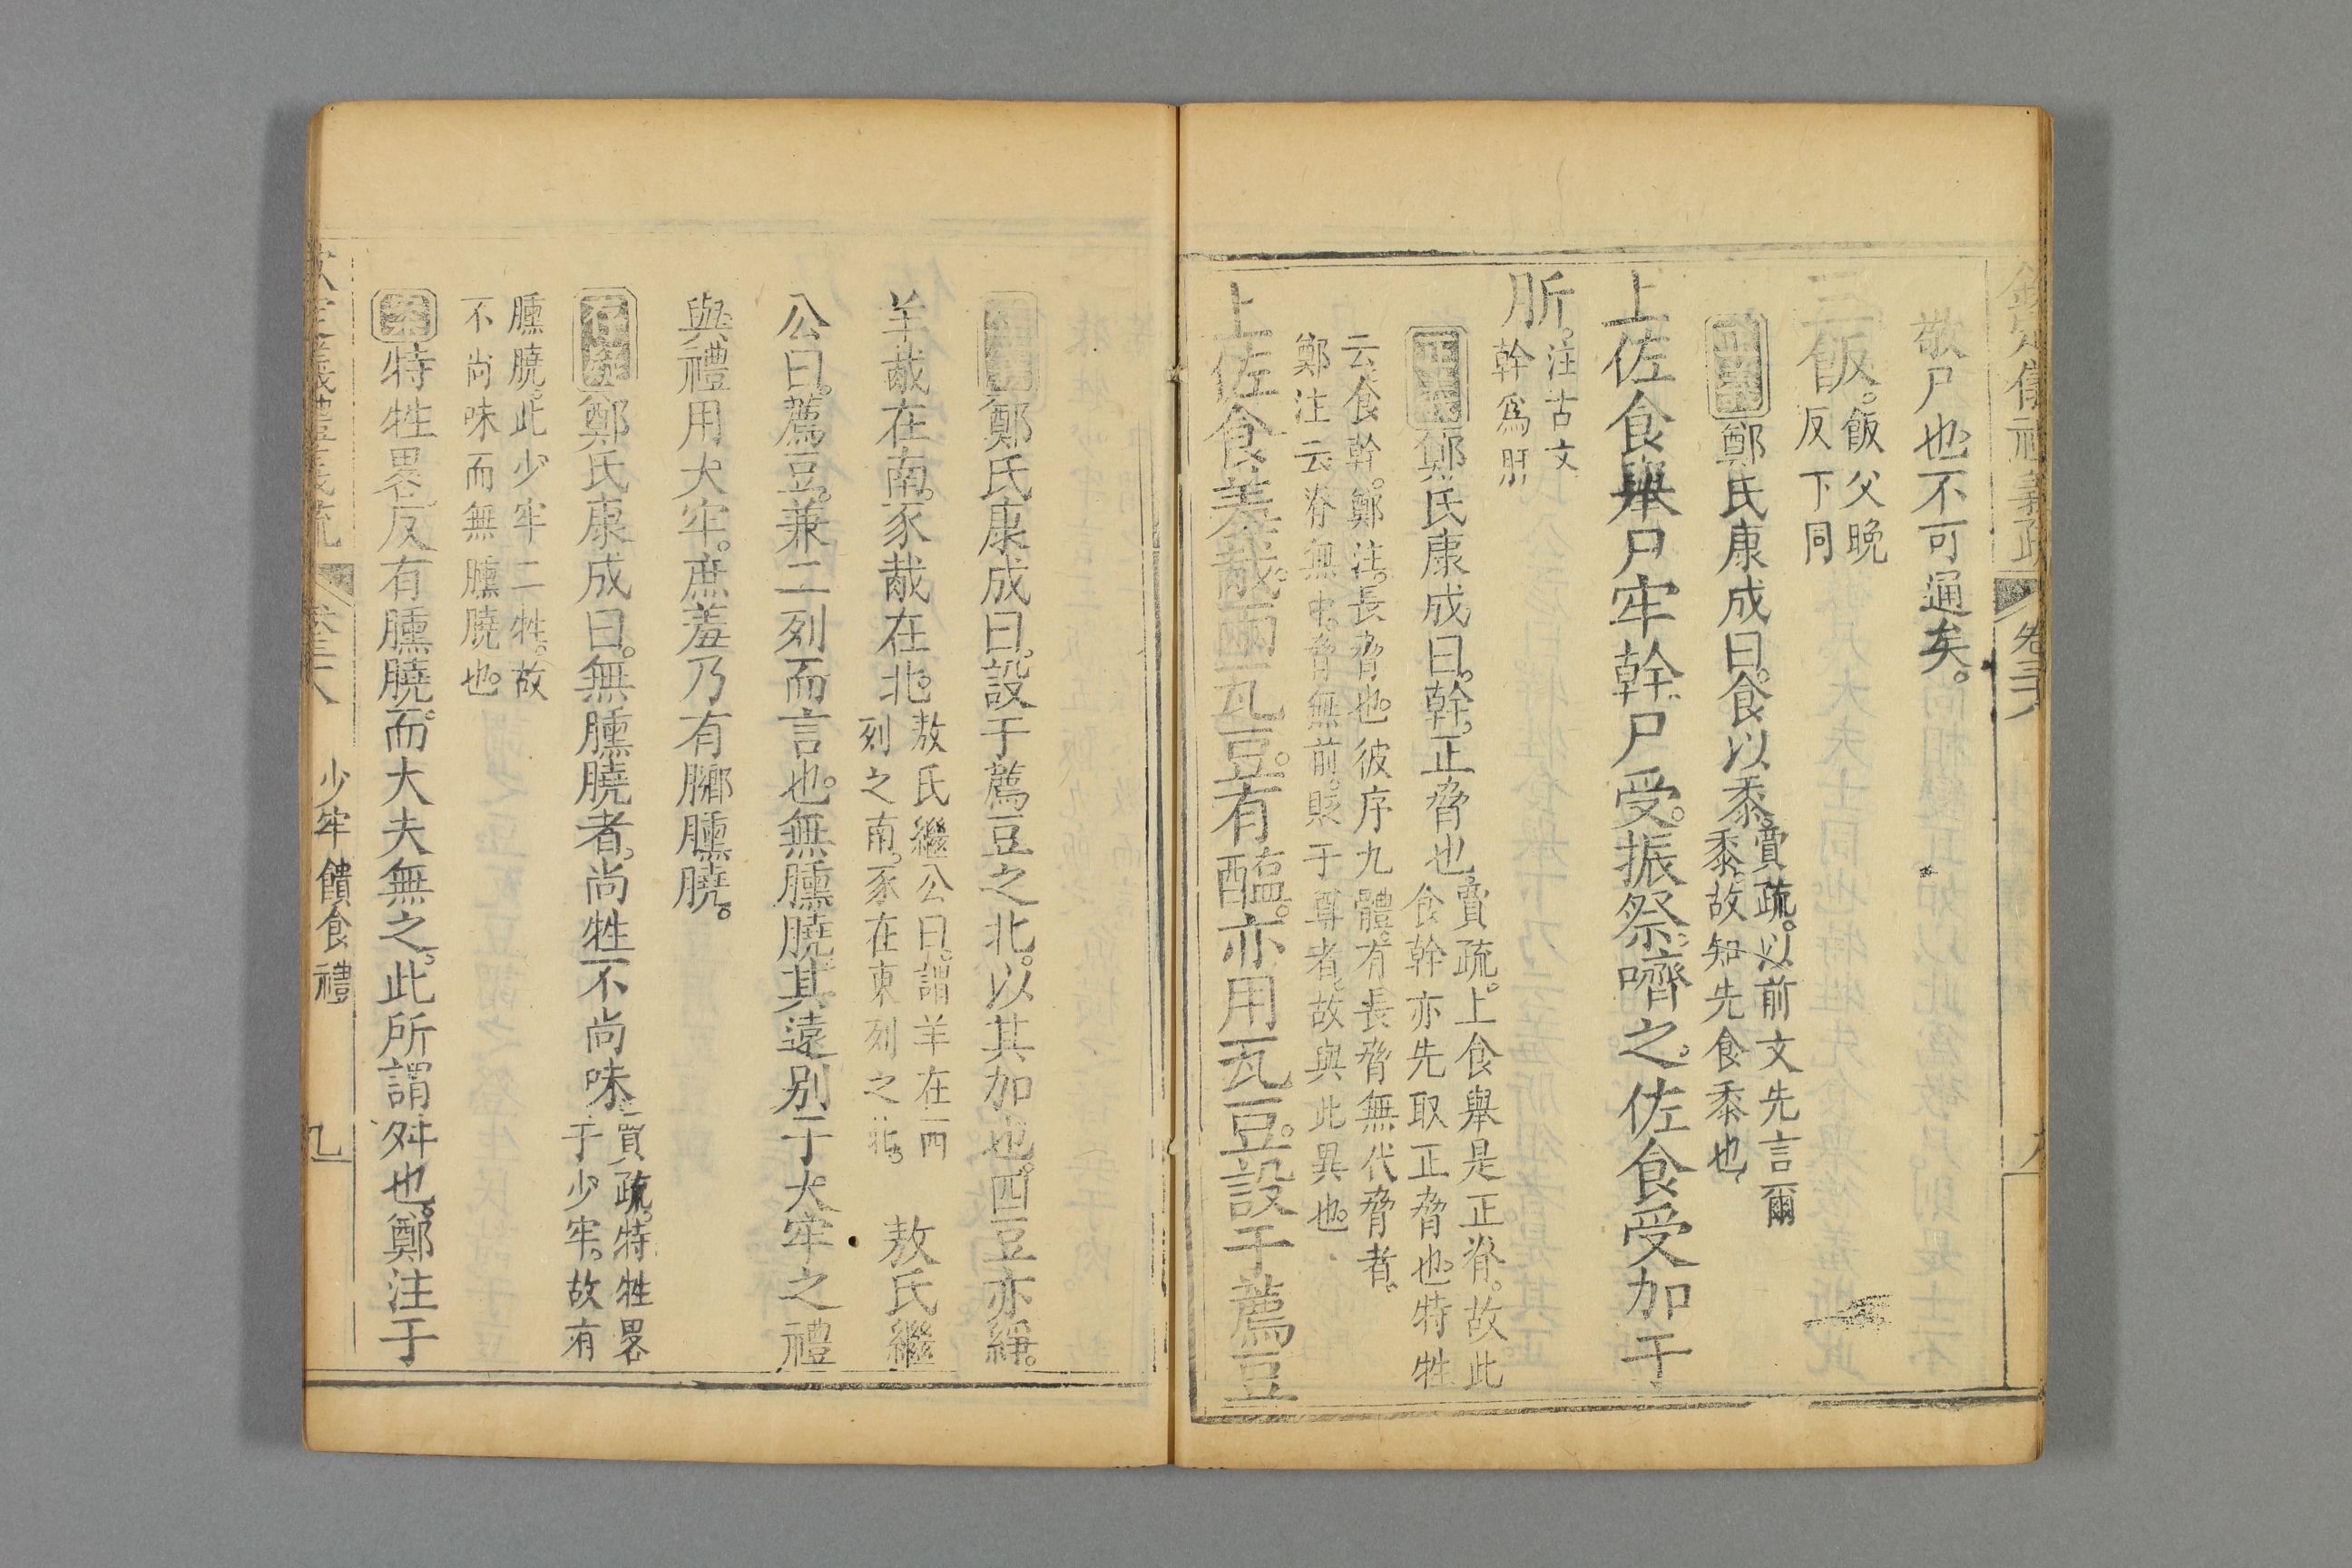 欽定儀禮義疏 卷三十八
敬尸也不可通矣。
三飯。飯父晚
反下同
正義鄭氏康成曰。食以黍。賈疏。以前文先言爾
黍。故知先食黍也
上佐食舉尸牢幹尸受。振祭嚌之。佐食受加于
肵。注古文
幹爲肝
正義鄭氏康成曰。幹。正脅也。賈疏。上食舉是正脊。故此
食幹亦先取正脅也。特牲
云食幹。鄭注。長脅也。彼序九體有長脅無代脅者。
鄭注云脊無中。脅無前。貶于尊者。故與此異也。
上佐食羞胾兩瓦豆。有醢。亦用瓦豆。設于薦豆
鄭氏康成曰。設于薦豆之北。以其加也。四豆亦綪。
羊胾在南。豕胾在北。敖氏繼公曰。謂羊在西
列之南。豕在東列之北。
敖氏繼
公曰。薦豆。兼二列而言也。無臐膮。其遠别于大牢之禮
與禮用大牢。庶羞乃有膷臐膮。
存疑鄭氏康成曰。無臐膮者。尚牲不尚味。賈疏。特牲畧
于少牢。故有
臐膮。此少牢二牲。故
不尚味而無臐膮也。
案特牲畧。反有臐膮。而大夫無之。此所謂舛也。鄭注于
欽定儀禮義疏 卷三十八 少牢饋食禮 九